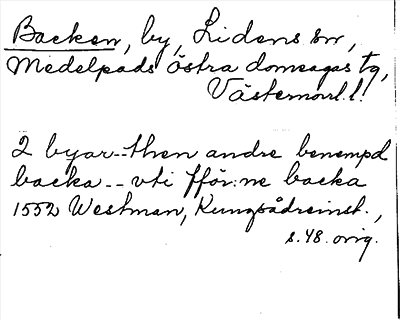 Backen, by, Lidens sn,
Medelpads östra domsagas tg,
Västernorrl. l.
2 byar -- then andre benempd
backa -- vti fför:ne backa
1552 Westman, Kungsådreinst.,
s. 48. orig.